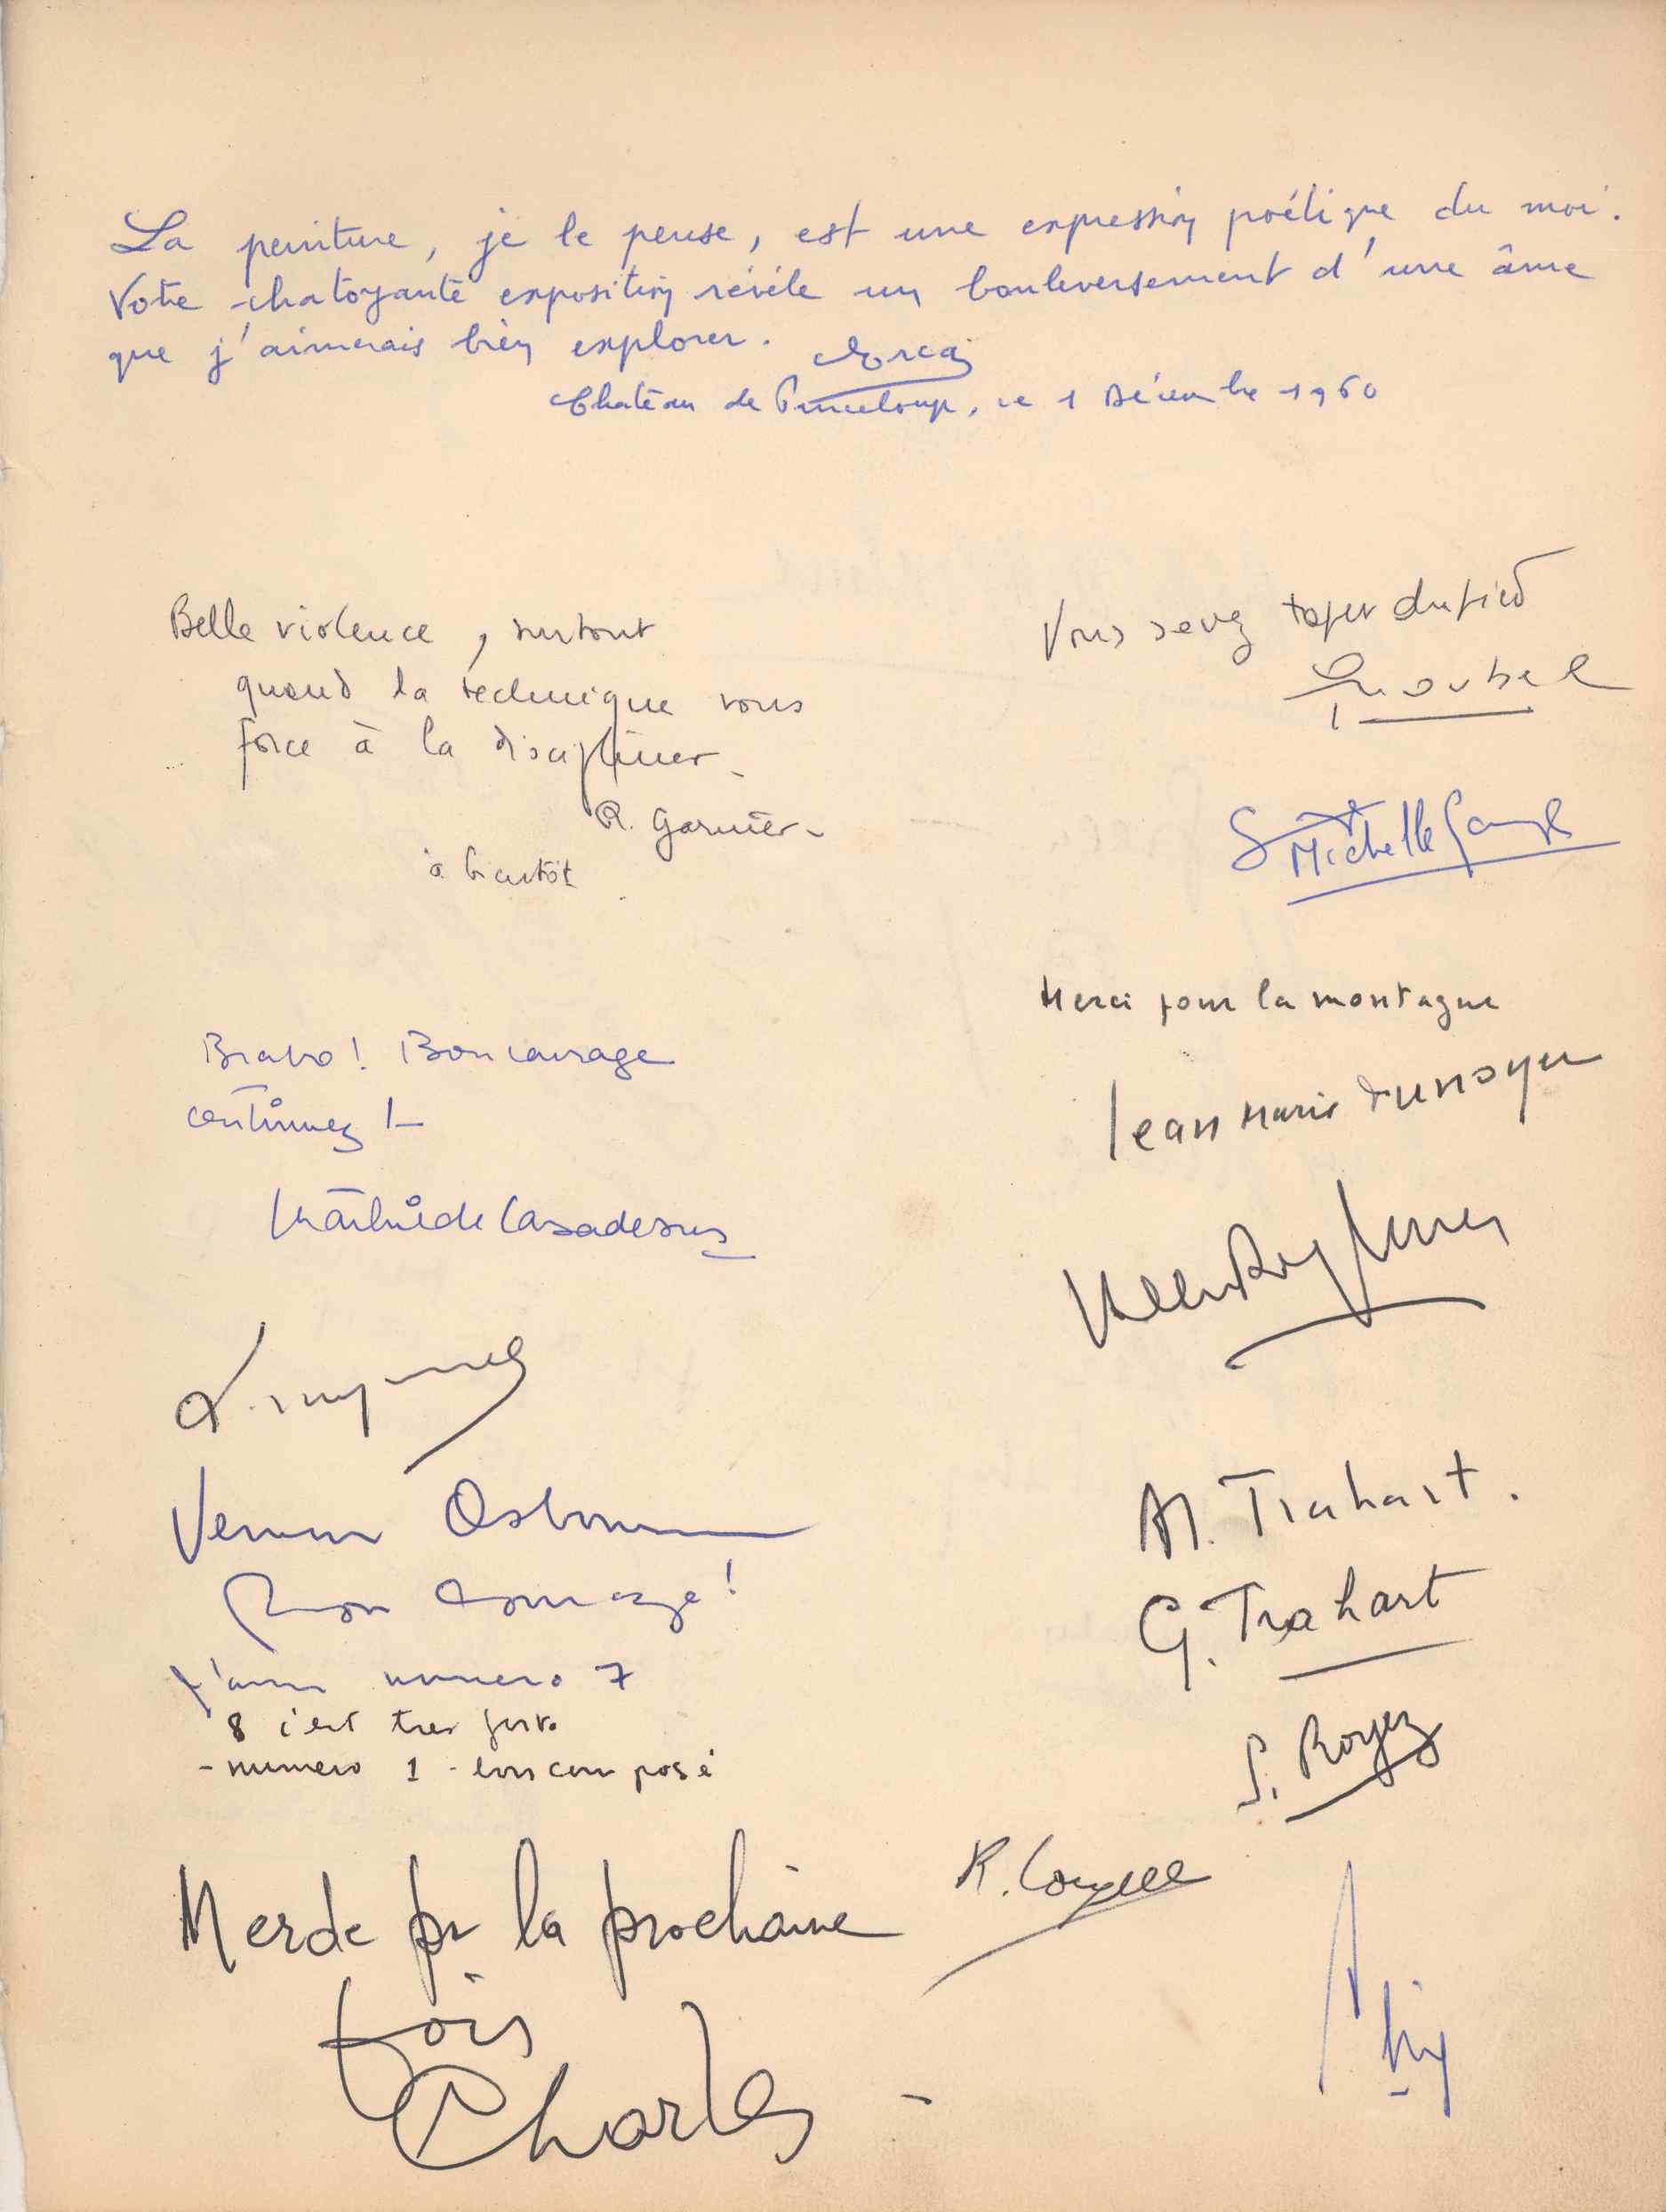 La peinture, je le pense, est une expression poétique du moi.
Votre chatoyante exposition révèle un bouleversement d'une âme
que j'aimerais bien explorer.
Château de Pinceloup, le 1 Décembre 1960
Belle violence, surtout
quand la technique vous
force à la discipliner.
R. Garnier
à bientôt
Vous savez taper du pied
Michelle
Merci pour la montagne
Jean Marie Dunoyer
Bravo! Bon courage
continuez !
Mathilde Casadesus
A. Trahart.
G. Trahart
S. Royez
Osborne
Bon courage!
J'aime numero 7
8 c'est tres forte
- numero 1 - bon composé
Merde pr la prochaine
fois
Charles
R.